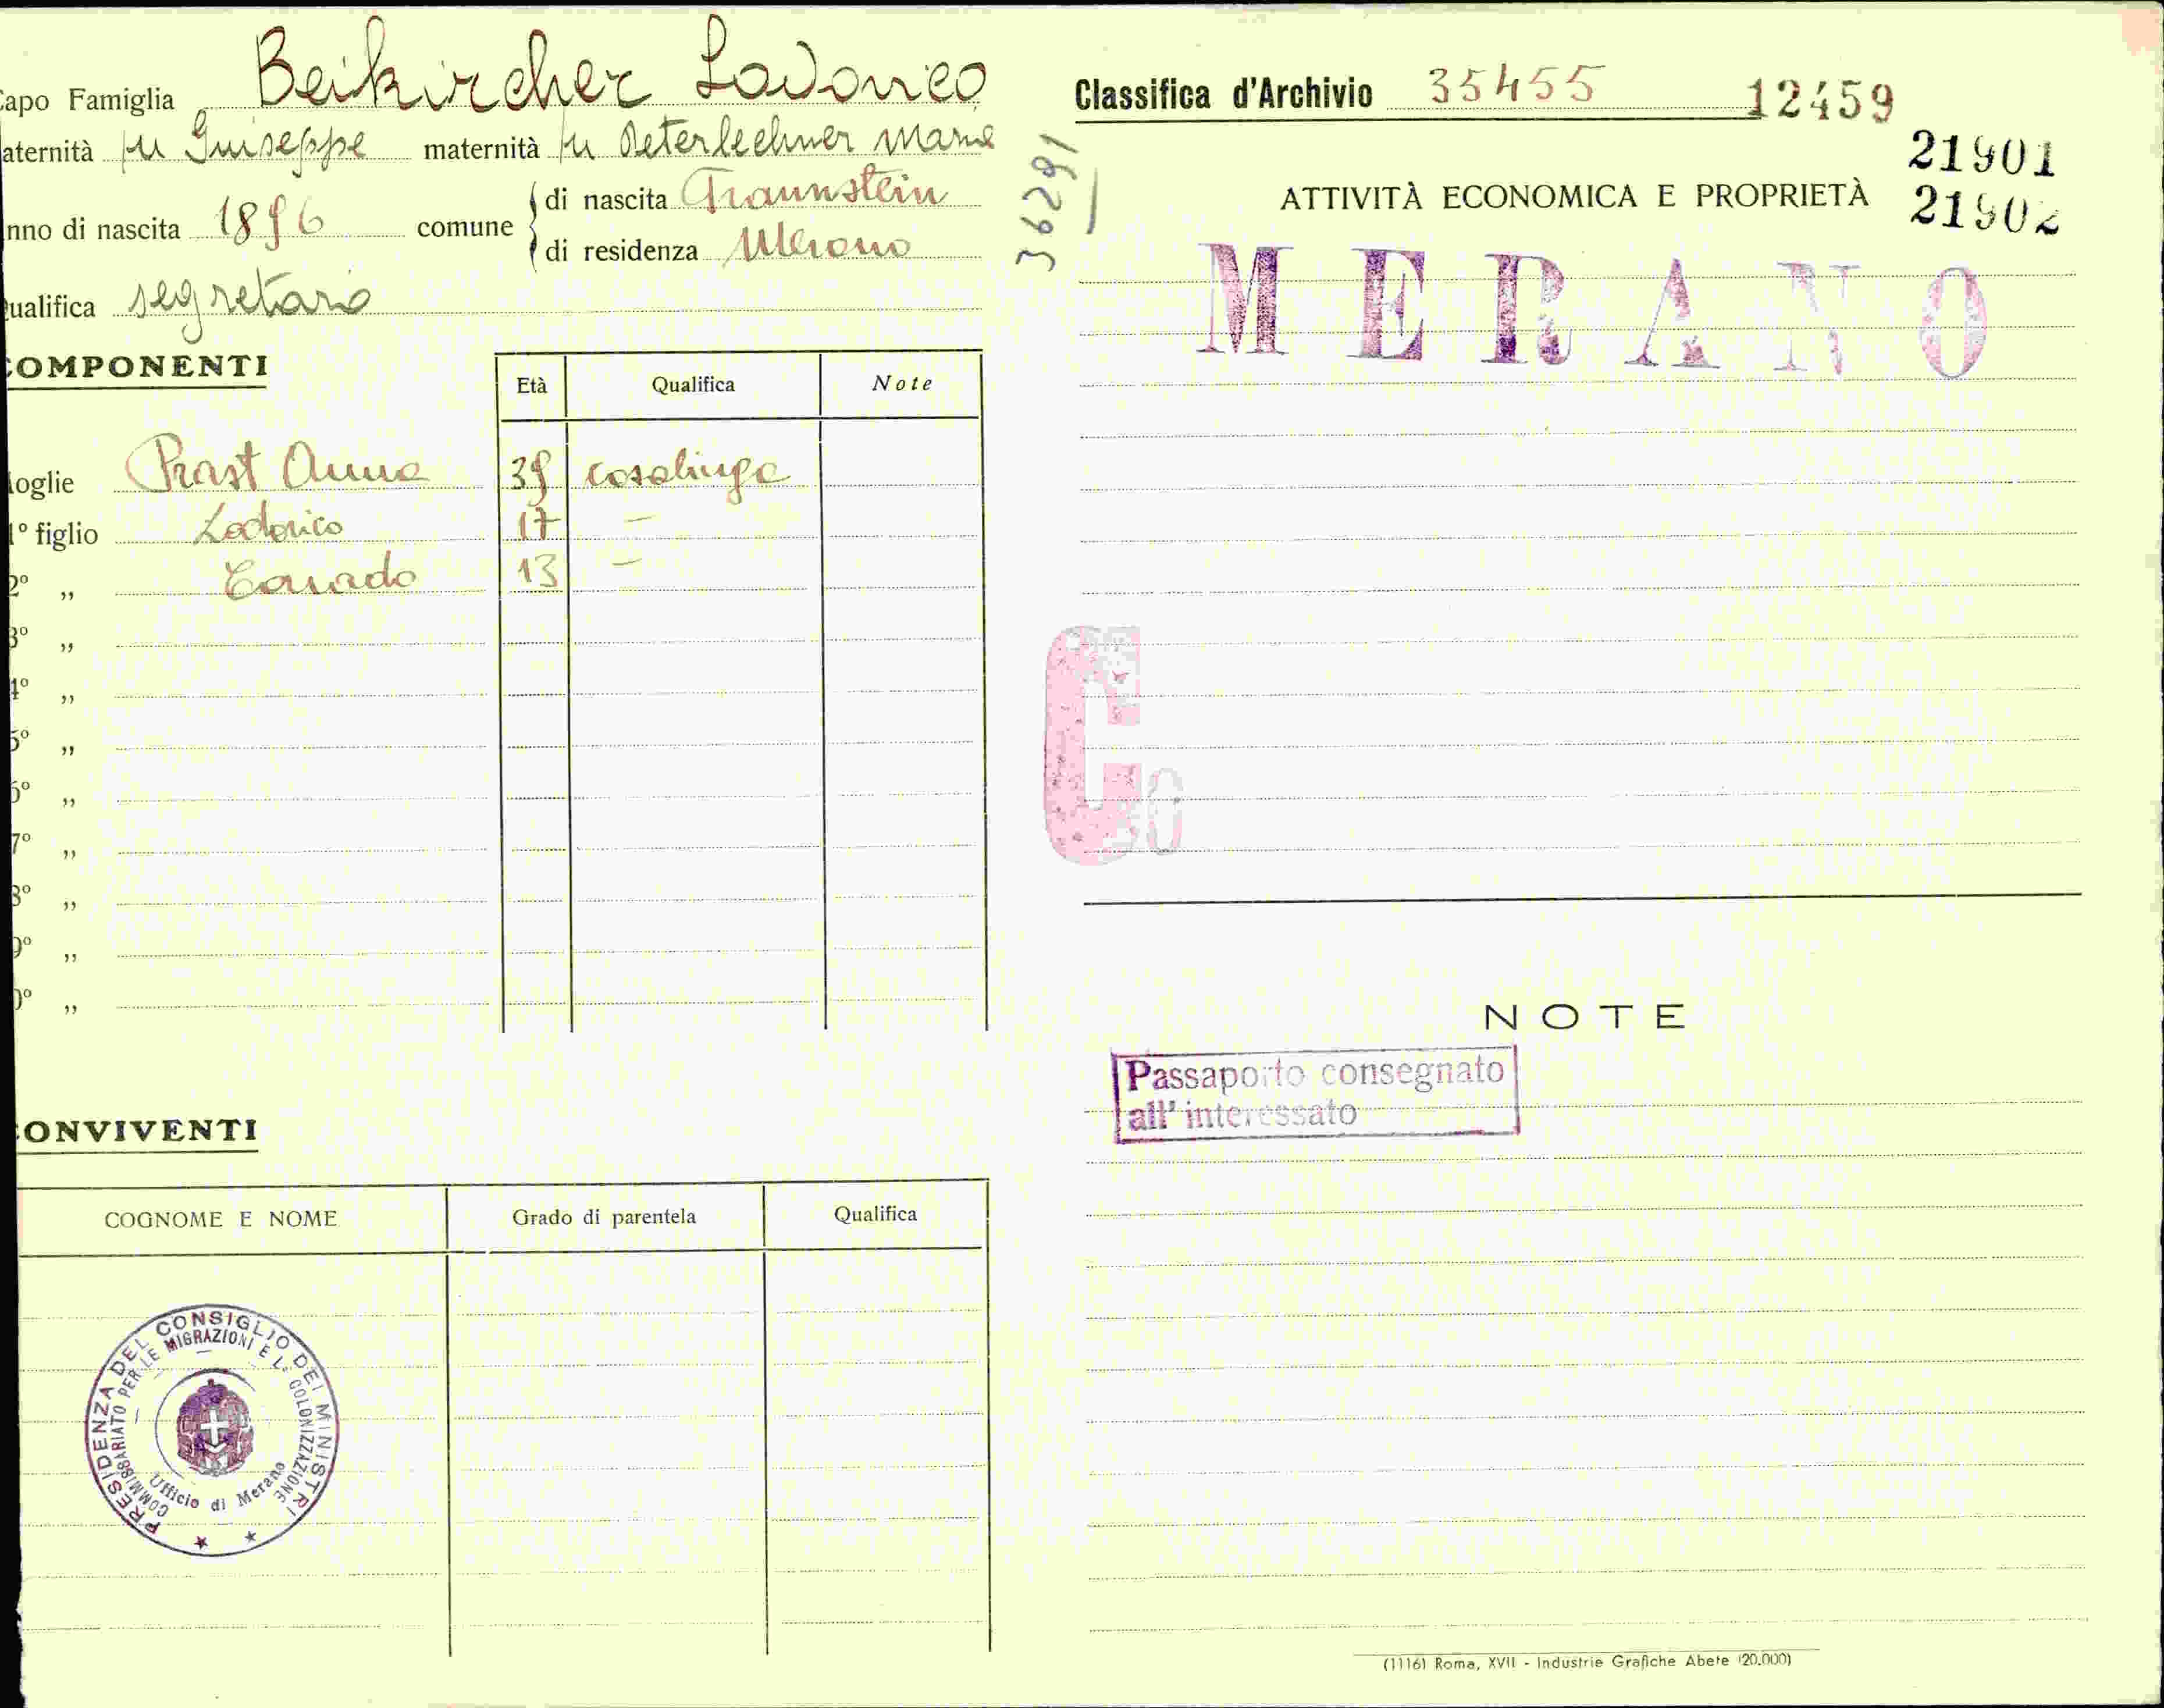 Capo Famiglia Beikircher Lodovico
aternità fu Giuseppe maternità fu Peterlechner Maria
nno di nascita 1896 comune di nascita Traunstein
di residenza Merano
ualifica segretario
COMPONENTI
Età Qualifica Note
oglie Prast Anna 39 casalinga
1° figlio Lodovico 17 —
2° „ Corrado 13 —
3° „
4° „
5° „
6° „
7° „
8° „
9° „
0° „
CONVIVENTI
COGNOME E NOME Grado di parentela Qualifica
PRESIDENZA DEL CONSIGLIO DEI MINISTRI
COMMISSARIATO PER LE MIGRAZIONI E LA COLONIZZAZIONE
Ufficio di Merano
36291
Classifica d'Archivio 35455 12459
21901
ATTIVITÀ ECONOMICA E PROPRIETÀ 21902
MERANO
C
NOTE
Passaporto consegnato
all' interessato
(1116) Roma, XVII - Industrie Grafiche Abete (20.000)